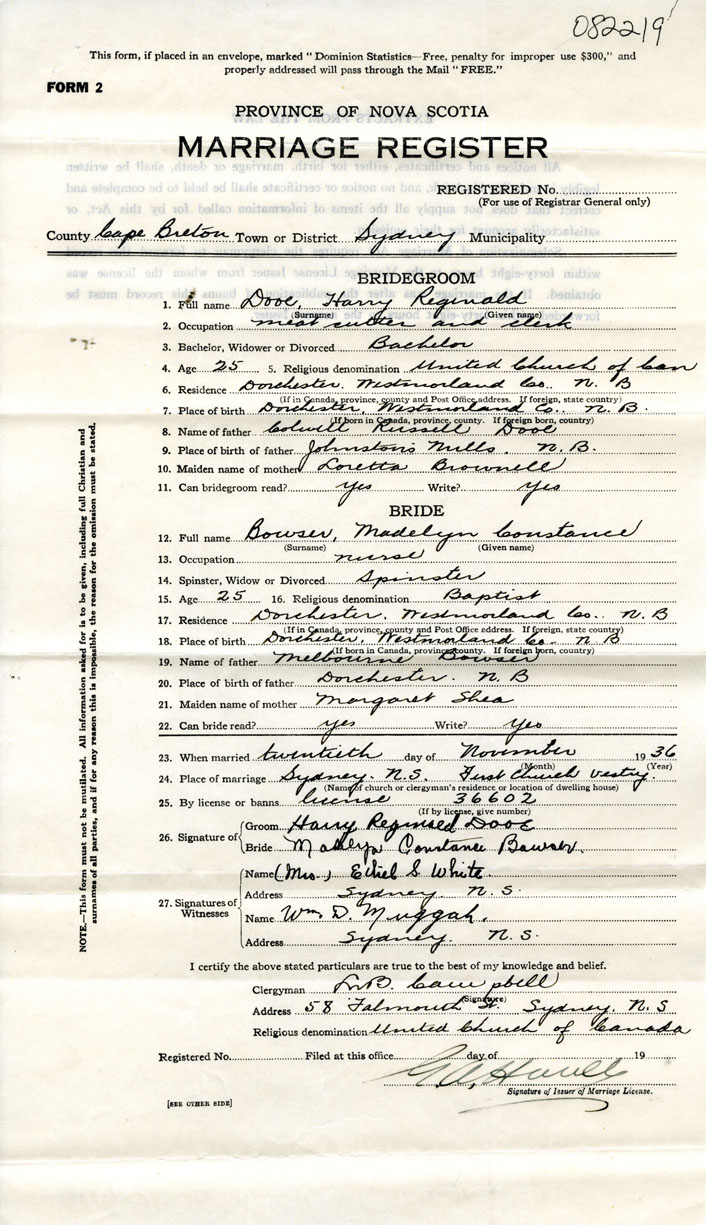 082219
This form, if placed in an envelope, marked "Dominion Statistics—Free, penalty for improper use $300," and
properly addressed will pass through the Mail "FREE."
FORM 2
PROVINCE OF NOVA SCOTIA
MARRIAGE REGISTER
REGISTERED No.
(For use of Registrar General only)
County Cape Breton Town or District Sydney Municipality
BRIDEGROOM
1. Full name Dooe, Harry Reginald
(Surname) (Given name)
2. Occupation meat cutter and clerk
3. Bachelor, Widower or Divorced Bachelor
4. Age 25 5. Religious denomination United Church of Can
6. Residence Dorchester, Westmorland Co.. N. B
(If in Canada, province, county and Post Office address. If foreign, state country)
7. Place of birth Dorchester, Westmorland Co.. N. B.
(If born in Canada, province, county. If foreign born, country)
8. Name of father Colwell Russell Dooe
9. Place of birth of father Johnstons Mills. N. B.
10. Maiden name of mother Loretta Brownell
11. Can bridegroom read? yes Write? yes
BRIDE
12. Full name Bowser, Madelyn Constance
(Surname) (Given name)
13. Occupation nurse
14. Spinster, Widow or Divorced Spinster
15. Age 25 16. Religious denomination Baptist
17. Residence Dorchester, Westmorland Co.. N. B
(If in Canada, province, county and Post Office address. If foreign, state country)
18. Place of birth Dorchester, Westmorland Co. N B
(If born in Canada, province, county. If foreign born, country)
19. Name of father Melbourne Bowser
20. Place of birth of father Dorchester. N. B
21. Maiden name of mother Margaret Shea
22. Can bride read? yes Write? yes
23. When married twentieth day of November 1936
(Month) (Year)
24. Place of marriage Sydney. N.S. First Church vestry.
(Name of church or clergyman's residence or location of dwelling house)
25. By license or banns license 36602
(If by license, give number)
26. Signature of Groom Harry Reginald Dooe
Bride Madelyn Constance Bowser.
27. Signatures of Witnesses
Name (Mrs.) Ethel S. White.
Address Sydney N. S.
Name Wm. D. Muggah.
Address Sydney. N. S.
I certify the above stated particulars are true to the best of my knowledge and belief.
Clergyman Campbell
(Signature)
Address 58 Falmouth St. Sydney. N. S
Religious denomination United Church of Canada
Registered No. Filed at this office day of 19
Signature of Issuer of Marriage License.
[SEE OTHER SIDE]
NOTE.—This form must not be mutilated. All information asked for is to be given, including full Christian and
surnames of all parties, and if for any reason this is impossible, the reason for the omission must be stated.